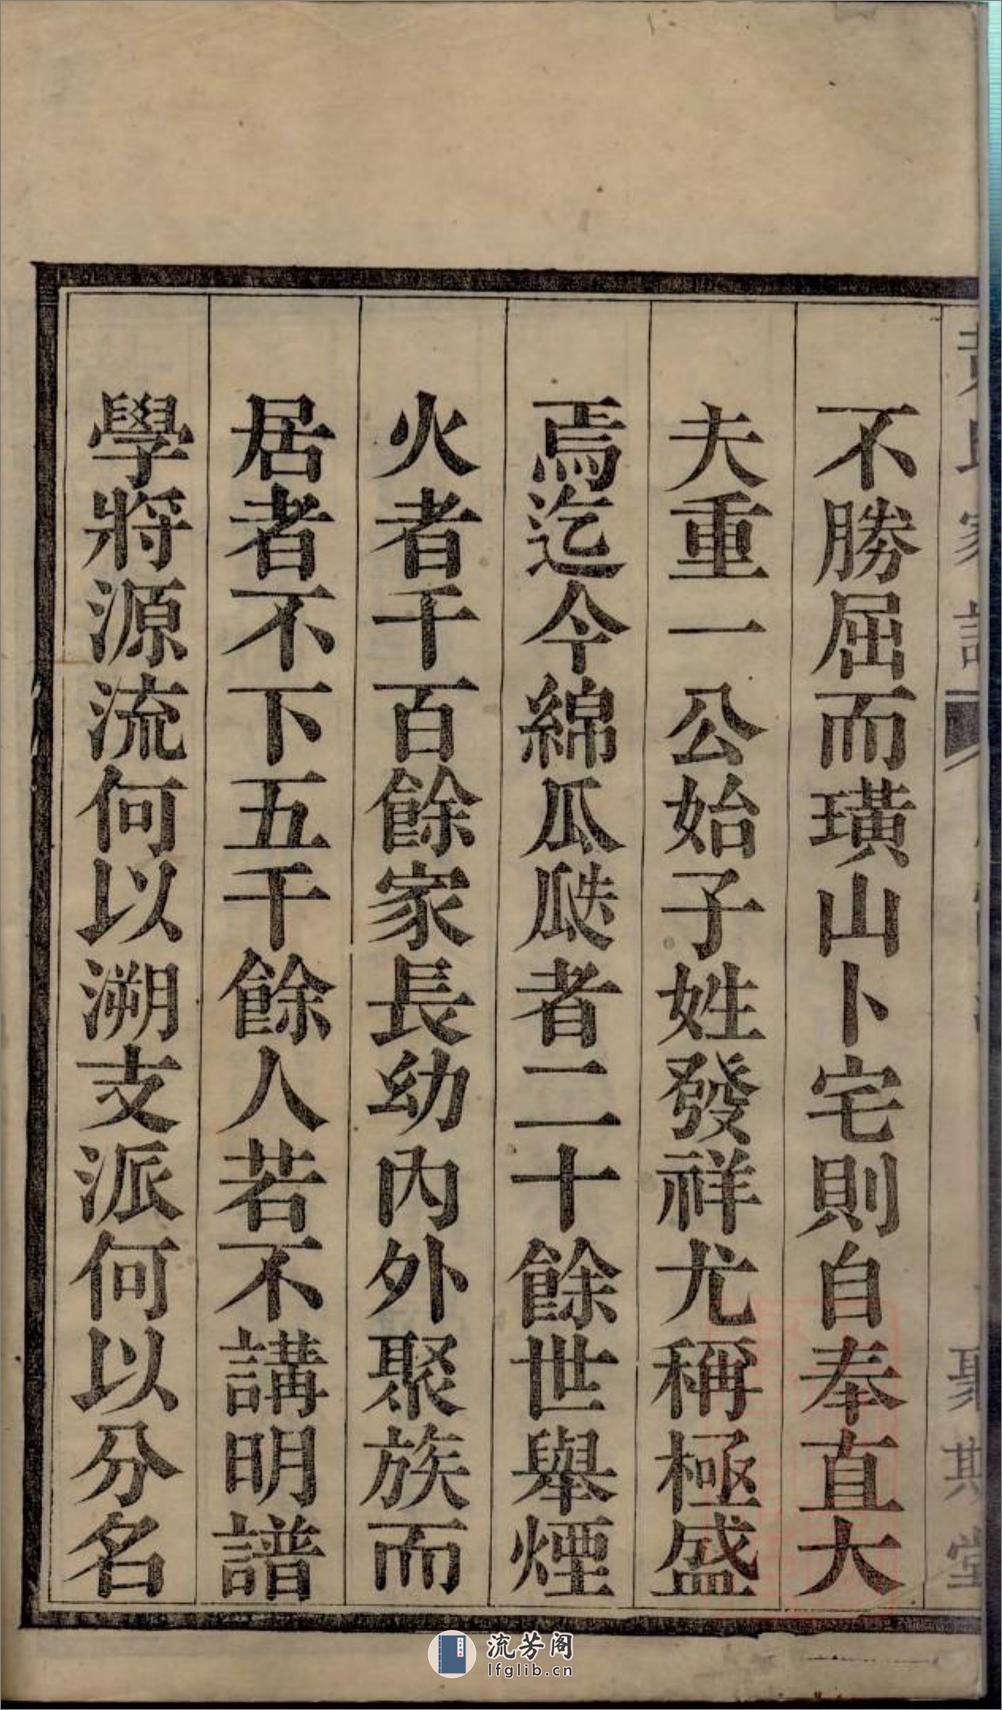 不勝屈而璜山卜宅則自奉直大
夫重一公始子姓發祥尤稱極盛
焉迄今綿瓜瓞者二十餘世舉煙
火者千百餘家長幼內外聚族而
居者不下五千餘人若不講明譜
學將源流何以溯支派何以分名
聚斯堂
流芳阁
lfglib.cn